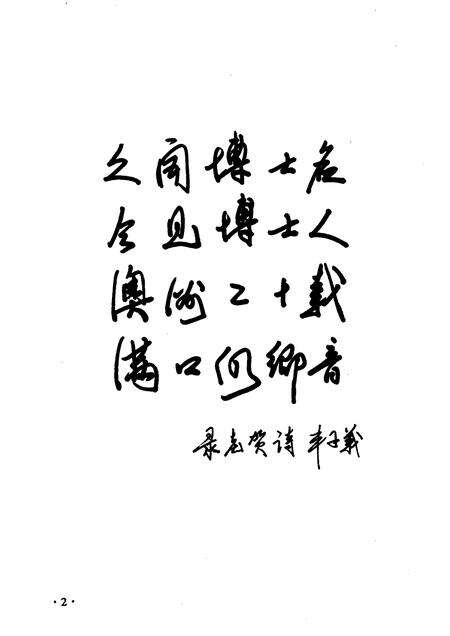 久闻博士名
今见博士人
澳洲二十载
满口仍鄉音
录老贺诗 丰子義
·2·